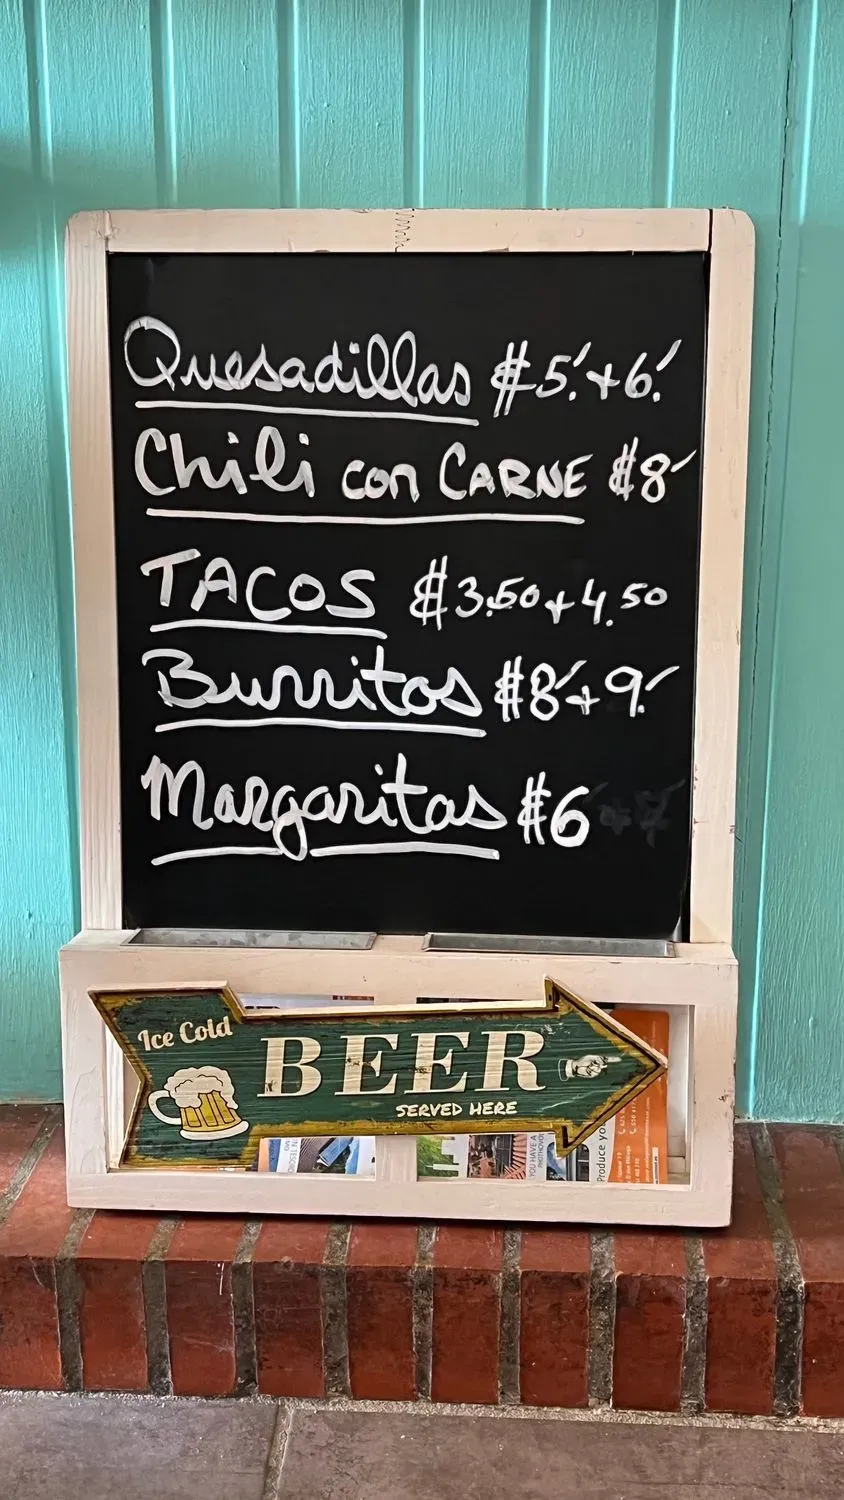 Quesadillas $5.'+6.'
Chili con CARNE $8'
TACOS $3.50+4.50
Burritos $8'+9.'
Margaritas $6
Ice Cold
BEER
SERVED HERE
YOU HAVE A
Produce yo